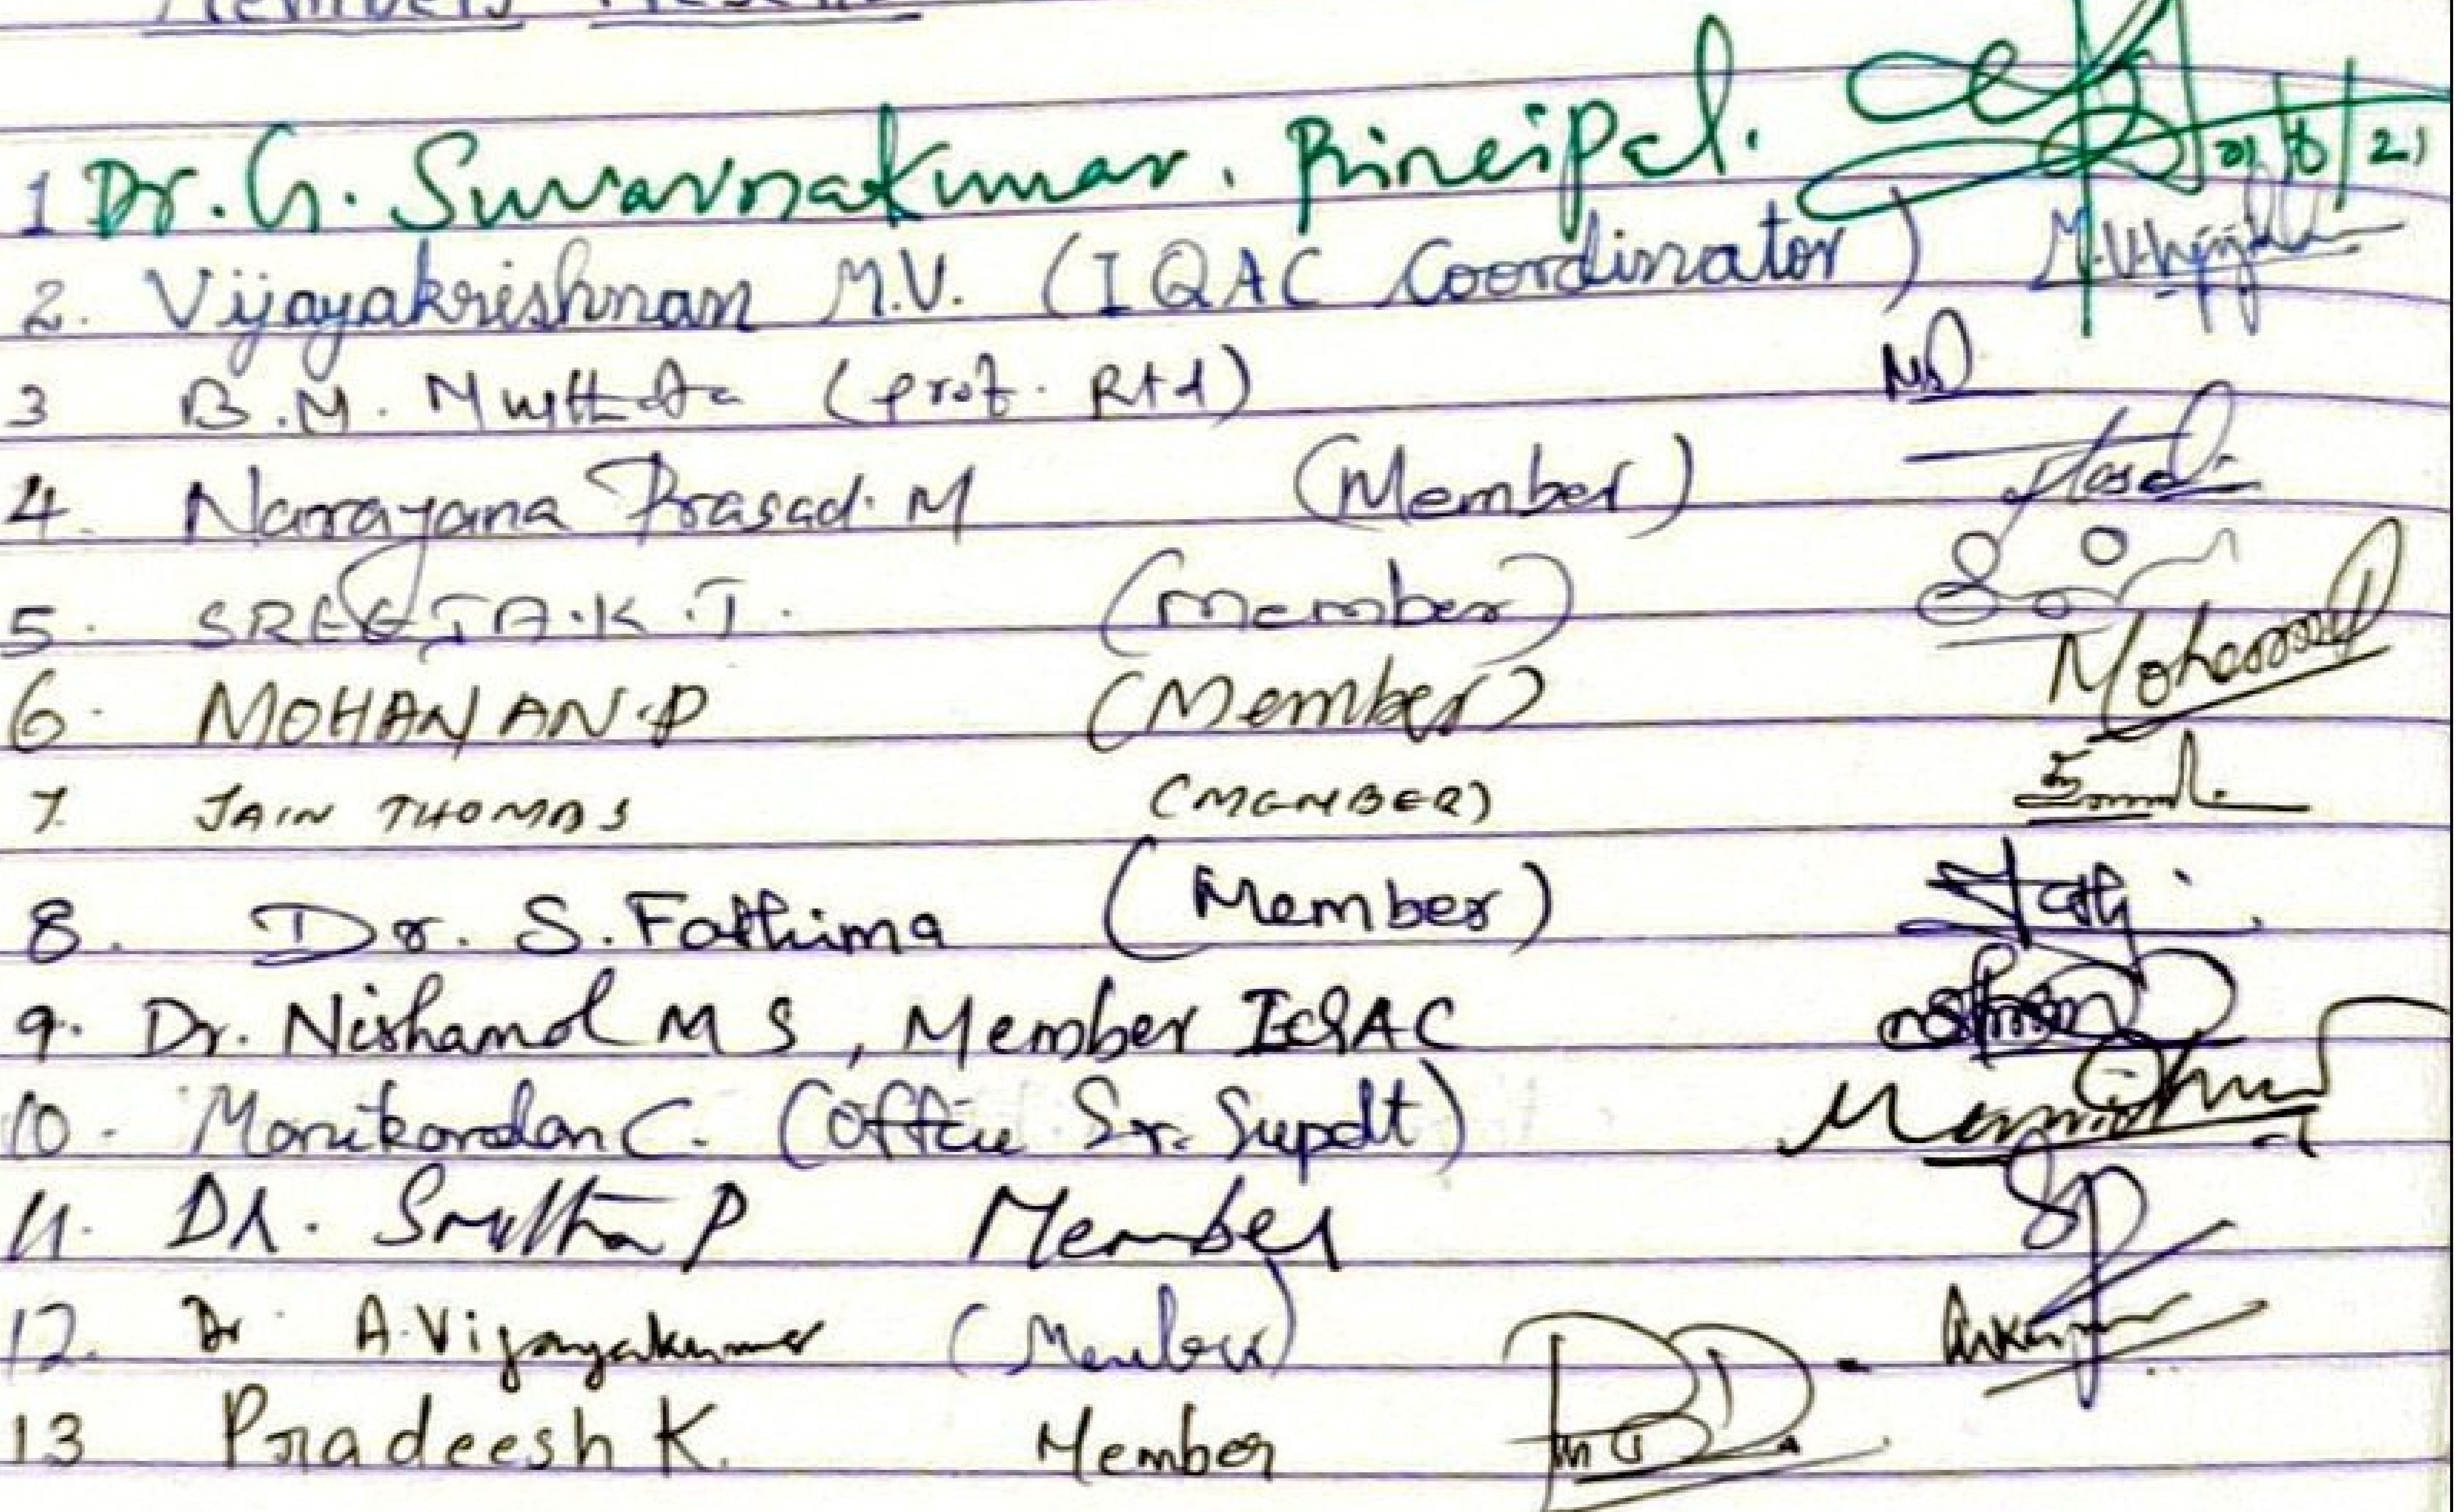 Members Present
1 Dr. G. Suvarnakumar. Principal. 21
2. Vijayakrishnan M.V. (IQAC Coordinator)
3 B.M. (Prof. Rtd)
4. Narayana Prasad. M (Member)
5. SREEJA.K.T. (Member)
6. MOHANAN.P (Member)
7. JAIN THOMAS (MEMBER)
8. Dr. S. Fathima (Member)
9. Dr. Nishamol M S, Member IQAC
10. Manikandan C. (Office Sr. Supdt)
11. Dr. P Member
12. Dr A. Vijayakumar (Member)
13 Pradeesh K. Member